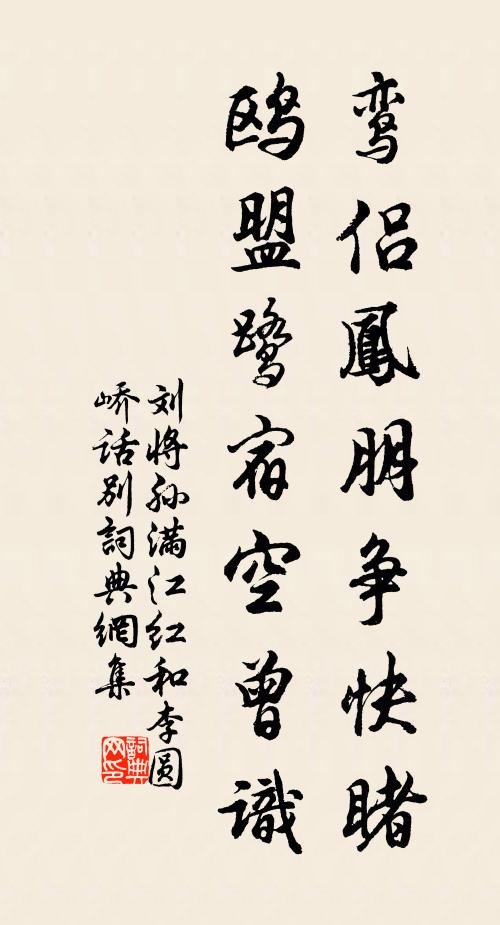 鸾侣鳳朋争快睹
鸥盟鹭宿空曾識
刘将孙满江红和李圆
峤话别詞典網集
詞典
网印